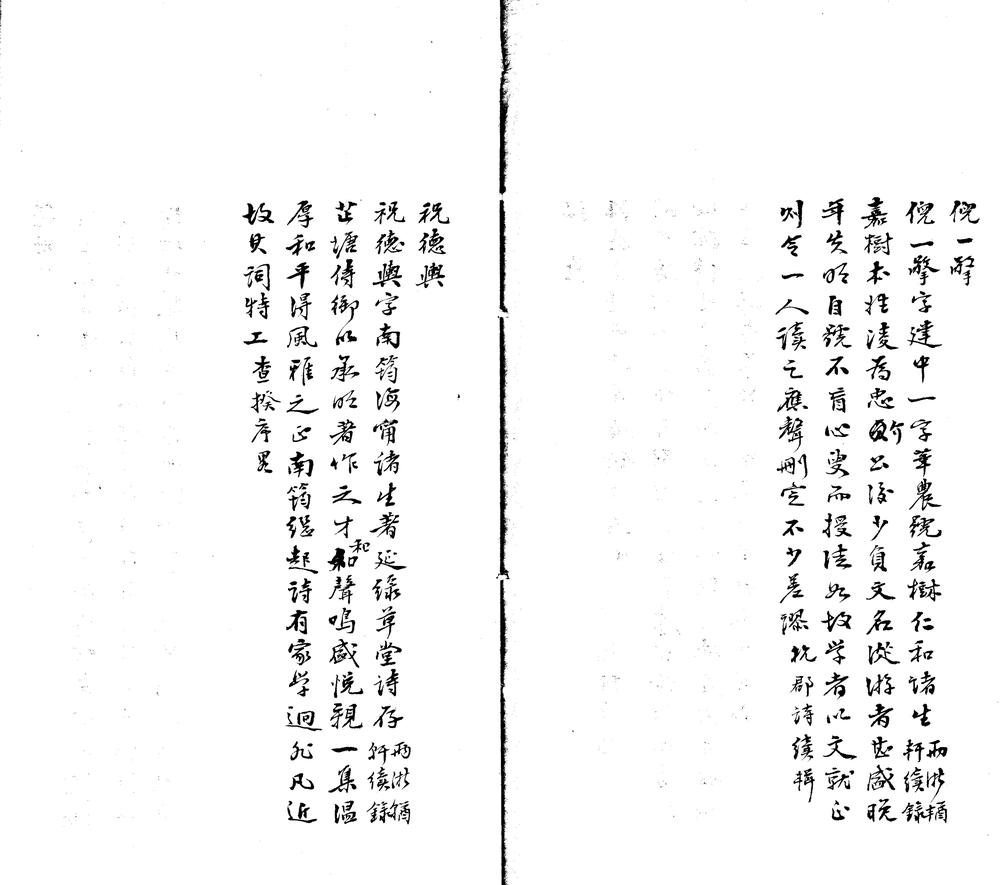 倪一擎
倪一擎字建中一字華農號嘉樹仁和諸生兩浙輶軒續錄
嘉樹本姓淩為忠介公後少負文名從游者甚盛晚
年失明自號不盲心叟而授徒如故学者以文就正
則令一人讀之應聲刪定不少差謬杭郡詩續輯
祝德輿
祝德輿字南筠海甯諸生著延綠草堂詩存兩浙輶軒續錄
芷塘侍御以承明著作之才和聲鳴盛悅親一集温
厚和平得風雅之正南筠繼起詩有家学迥非凡近
故其詞特工查揆序畧